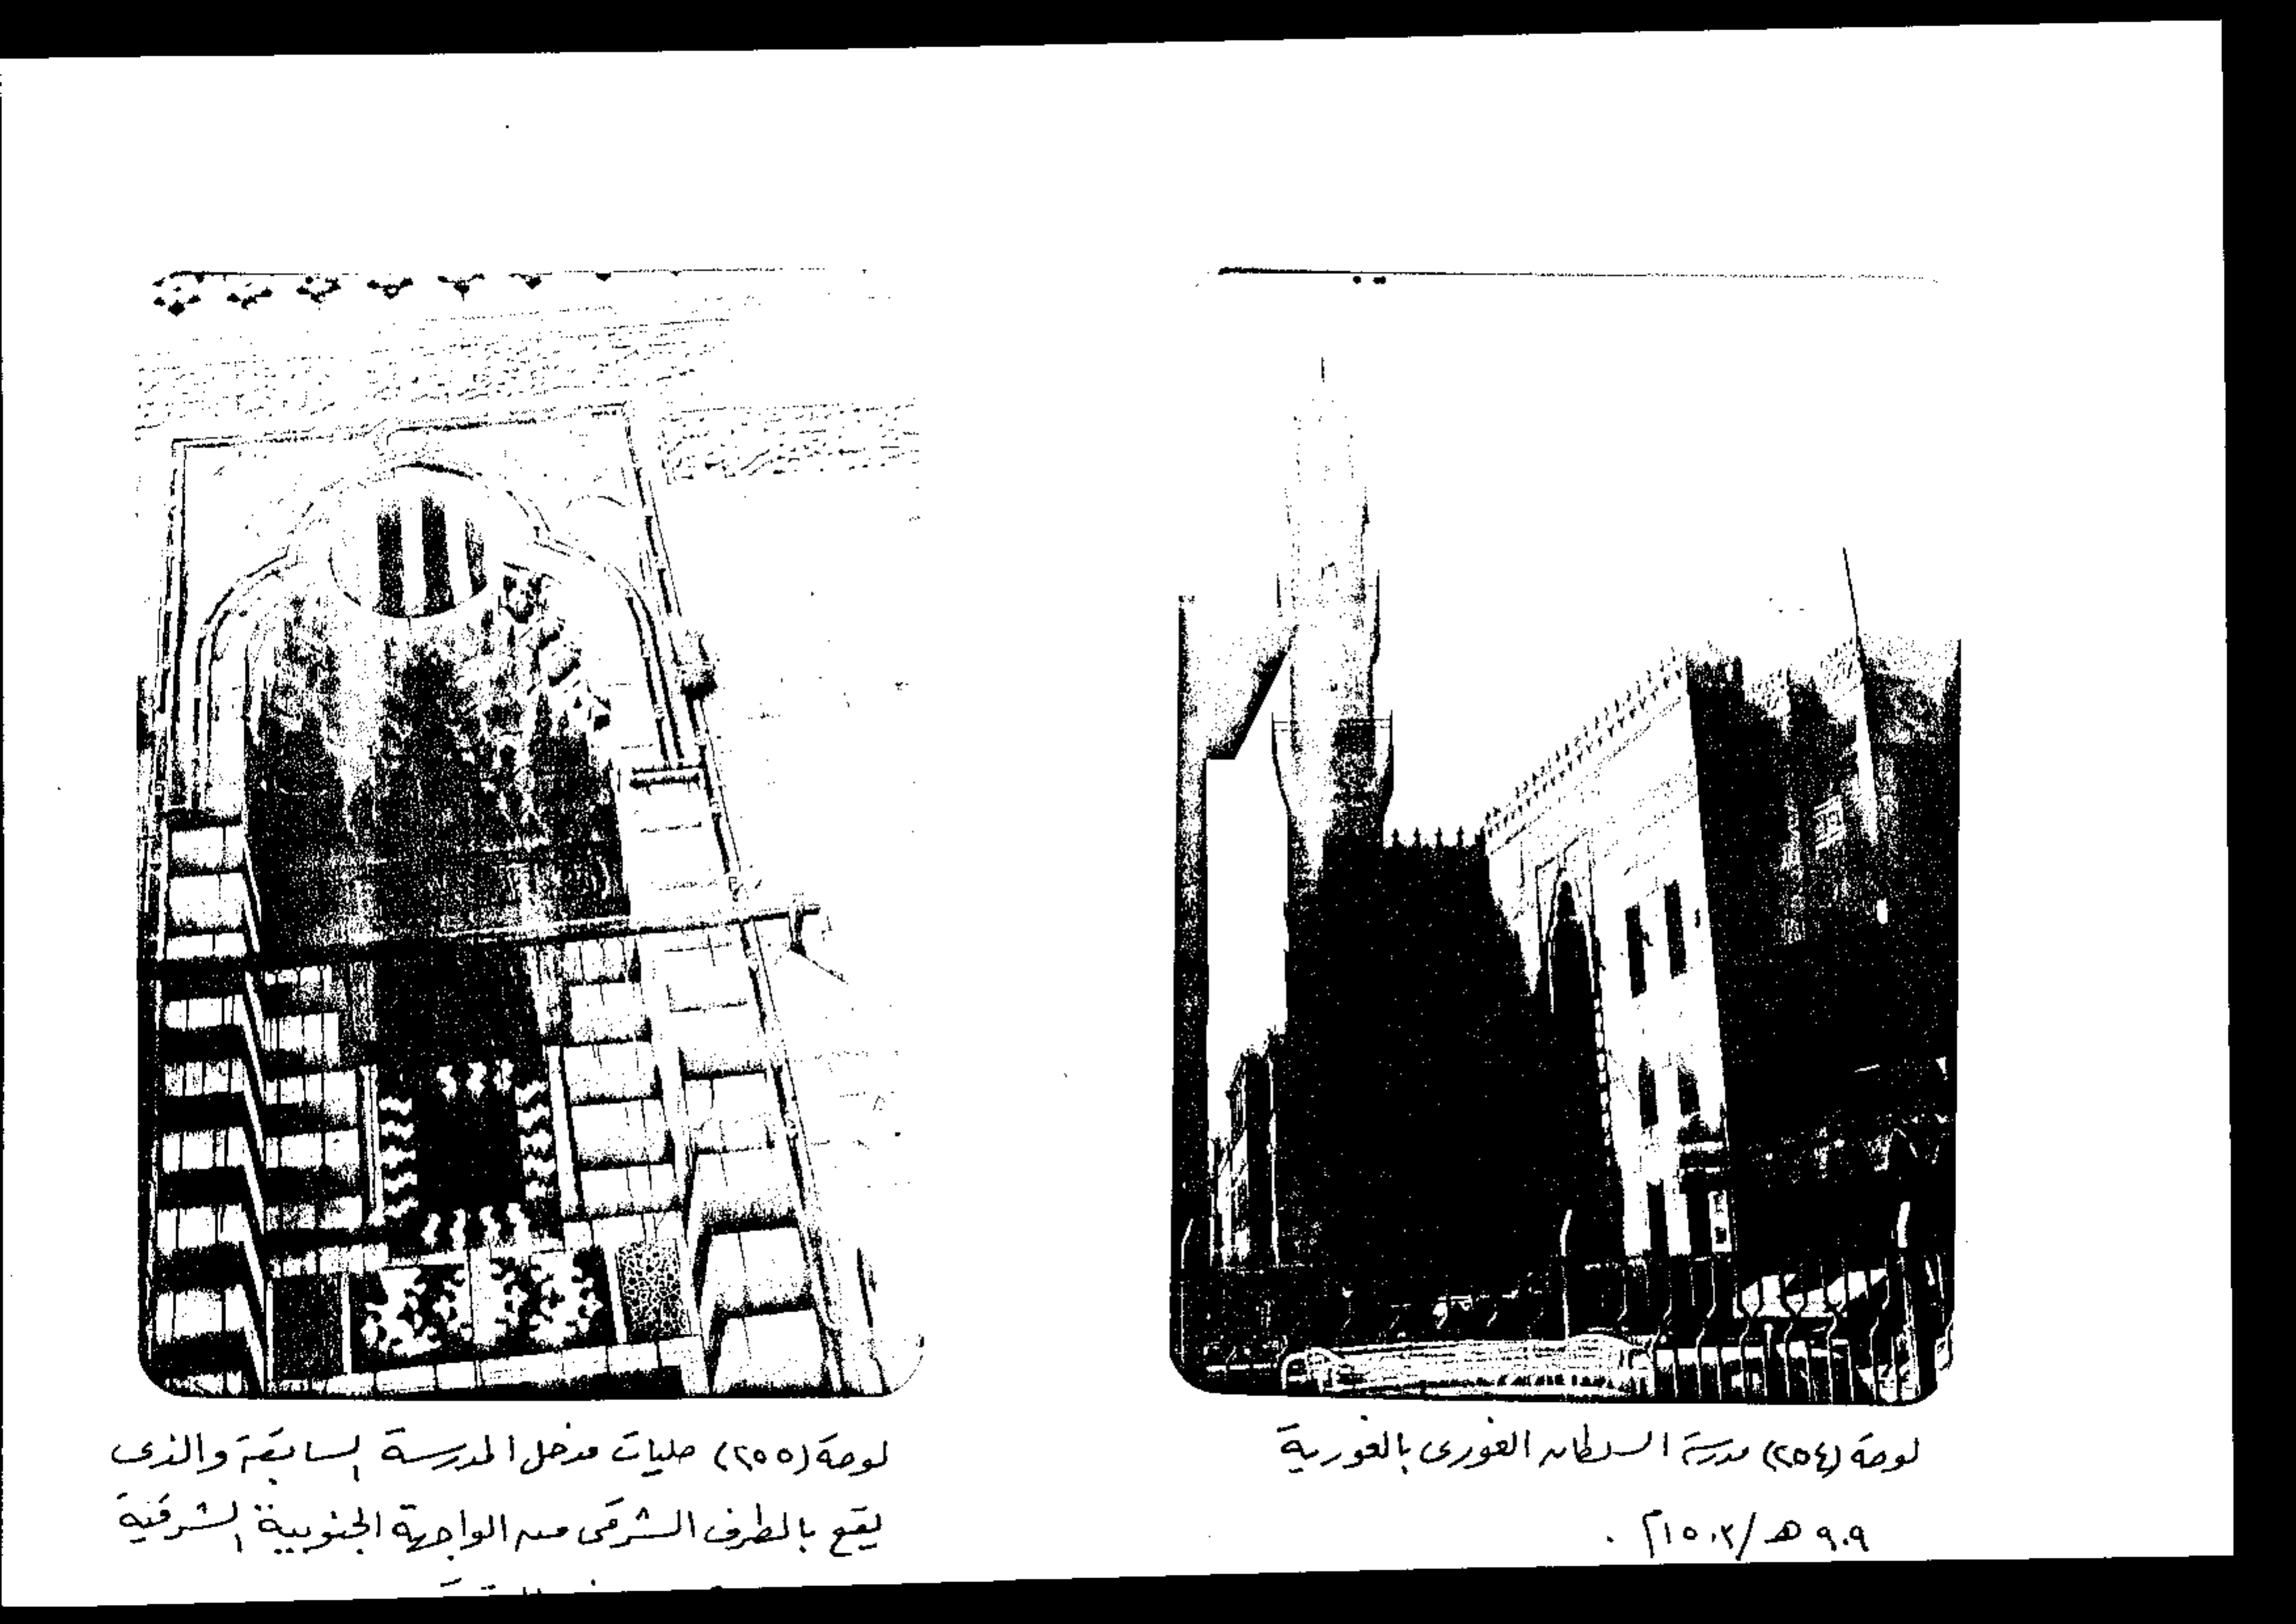 لوحة (٢٥٤) مدرسة السلطان الغورى بالغورية
٩٠٩ هـ/١٥٠٣م .
لوحة (٢٥٥) حليات مدخل المدرسة السابقة والذى
يقع بالطرف الشرقى من الواجهة الجنوبية الشرقية